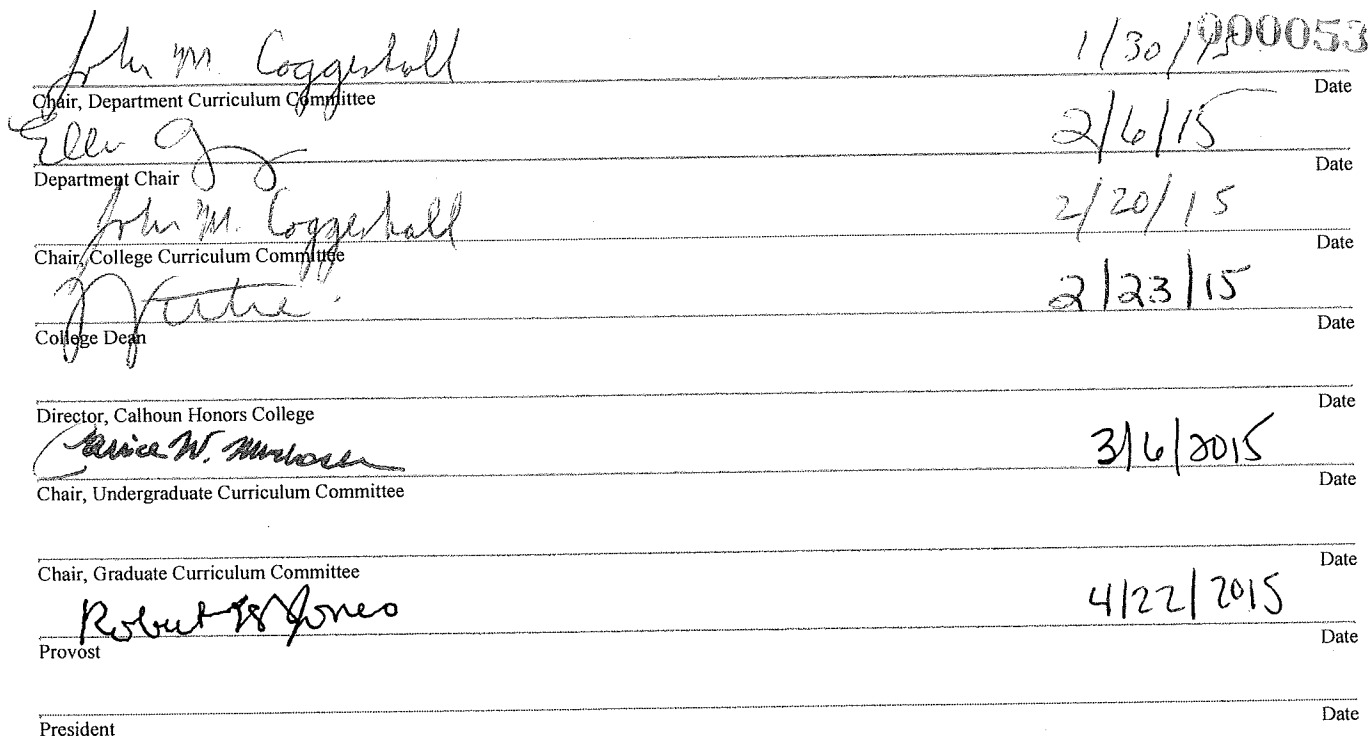 John M. Coggeshall 1/30/15 000053
Chair, Department Curriculum Committee Date
Ellen 2/6/15
Department Chair Date
John M. Coggeshall 2/20/15
Chair, College Curriculum Committee Date
2/23/15
College Dean Date
Director, Calhoun Honors College Date
Janice W. 3/6/2015
Chair, Undergraduate Curriculum Committee Date
Chair, Graduate Curriculum Committee Date
Robert H Jones 4/22/2015
Provost Date
President Date